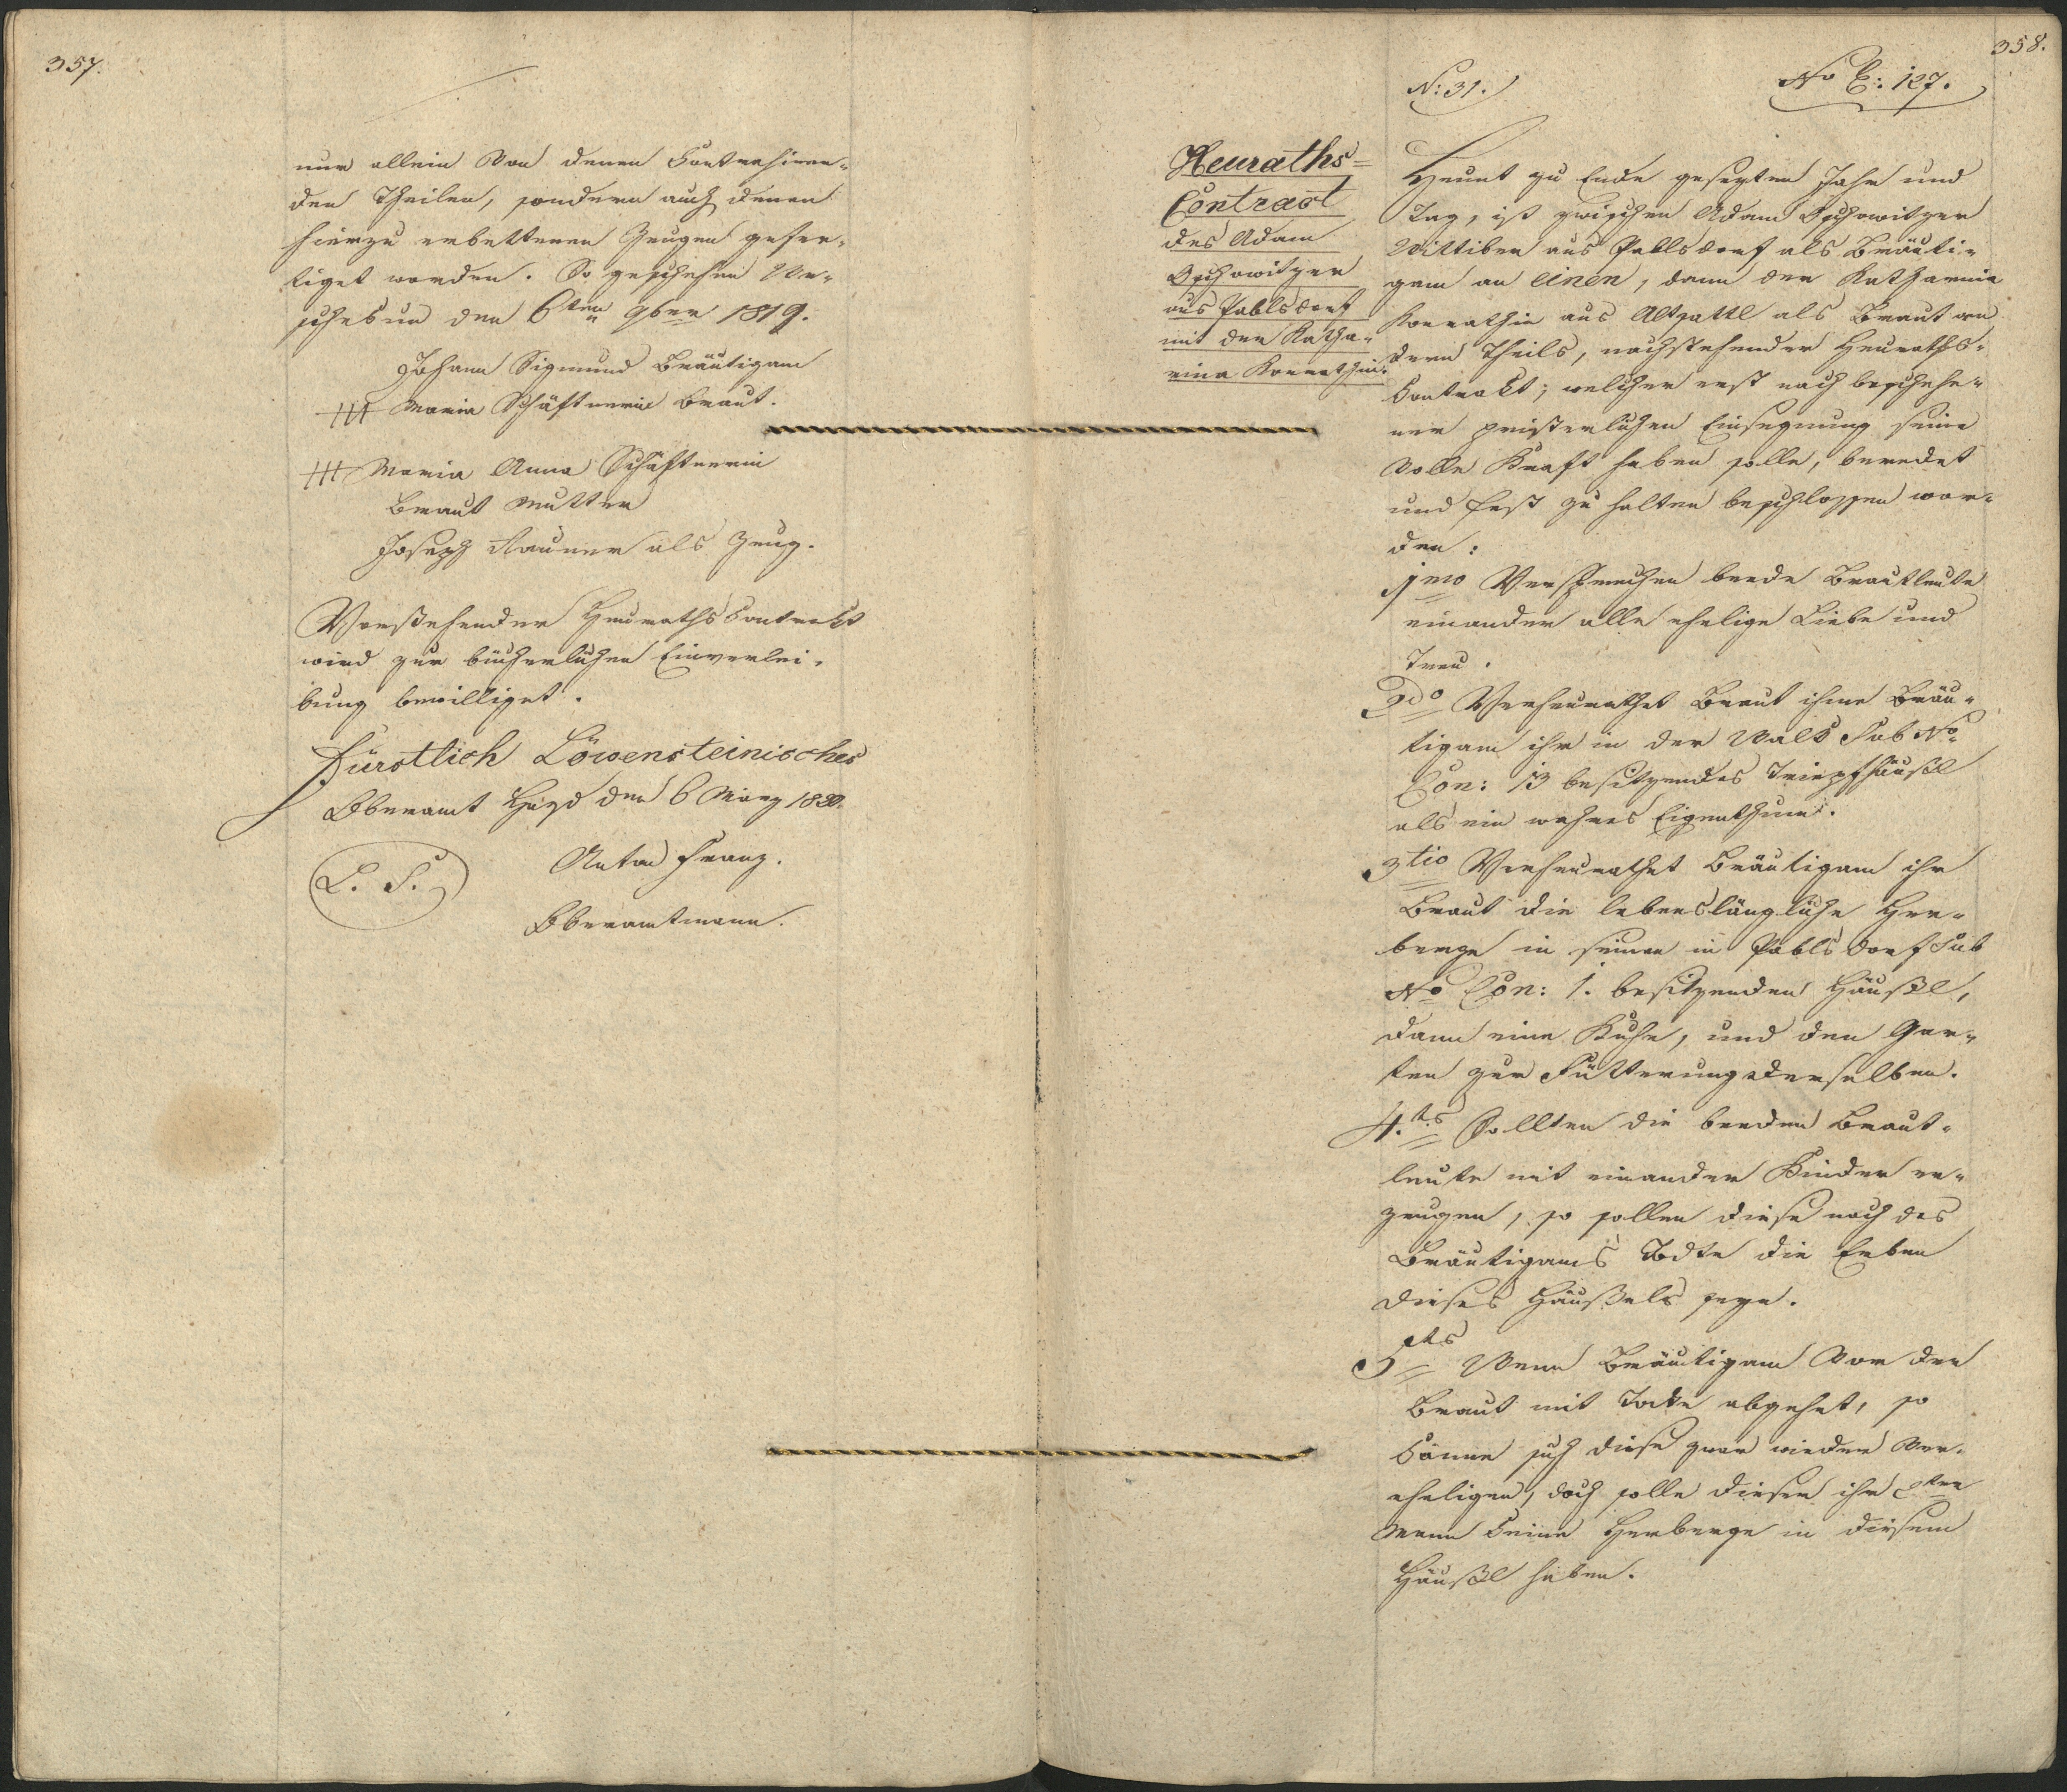 357.
nur allein von denen Contrahiren-
den Theilen, sondern auch denen
hierzu erbettenen Zeugen gefer-
tiget worden. So geschehen Ur-
schesun den 6ten 9ber 1819.
Johann Sigmund Bräutigam
+++ Maria Schäftnerin Braut.
+++ Maria Anna Schäftnerin
Braut Mutter
Joseph Rauner als Zeug.
Vorstehender Heuraths Contrakt
wird zur bücherlichen Einverlei-
bung bewilliget.
Fürstlich Löwensteinisches
Oberamt Hayd den 6 März 1820.
L. S.
Anton Franz.
Oberamtmann.
358.
N: 31.
No E: 127.
Heuraths-
Contract
des Adam
Opschowitzer
aus Pablsdorf
mit der Katha-
rina Konrathin.
Heunt zu Ende gesezten Jahr und
Tag, ist zwischen Adam Opschowitzer
Wittiber aus Pablsdorf als Bräuti-
gam an einen, dann der Katharina
Konrathin aus Altzattl als Braut an
dern Theils, nachstehender Heuraths-
Contrakt; welcher erst nach beschehe-
ner pristerlichen Einsegnung seine
volle Kraft haben solle, beredet
und fest zu halten beschlossen wor-
den:
1mo Versprechen beede Brautleute
einander alle ehelige Liebe und
Treu.
2do Verheurathet Braut ihme Bräu-
tigam ihr in der Wald Sub No
Con: 13 besitzendes Tripfhäußl
als ein wahres Eigenthum.
3tio Verheurathet Bräutigam ihr
Braut die lebenslängliche Her-
berge in seinen in Pablsdorf Sub
No Con: 1. besitzenden Häußl,
dann eine Kuhe, und den Gar-
ten zur Fütterung derselben.
4.ts Sollten die beeden Braut-
leute mit einander Kinder er-
zeugen, so sollen diese nach des
Bräutigams Todte die Erben
dieses Häußels seye.
5ts Wenn Bräutigam vor der
Braut mit Tode abgehet, so
könne sich diese zwar wieder ver-
eheligen, doch solle dieser ihr 2ter
Mann keine Herberge in diesem
Häußl haben.